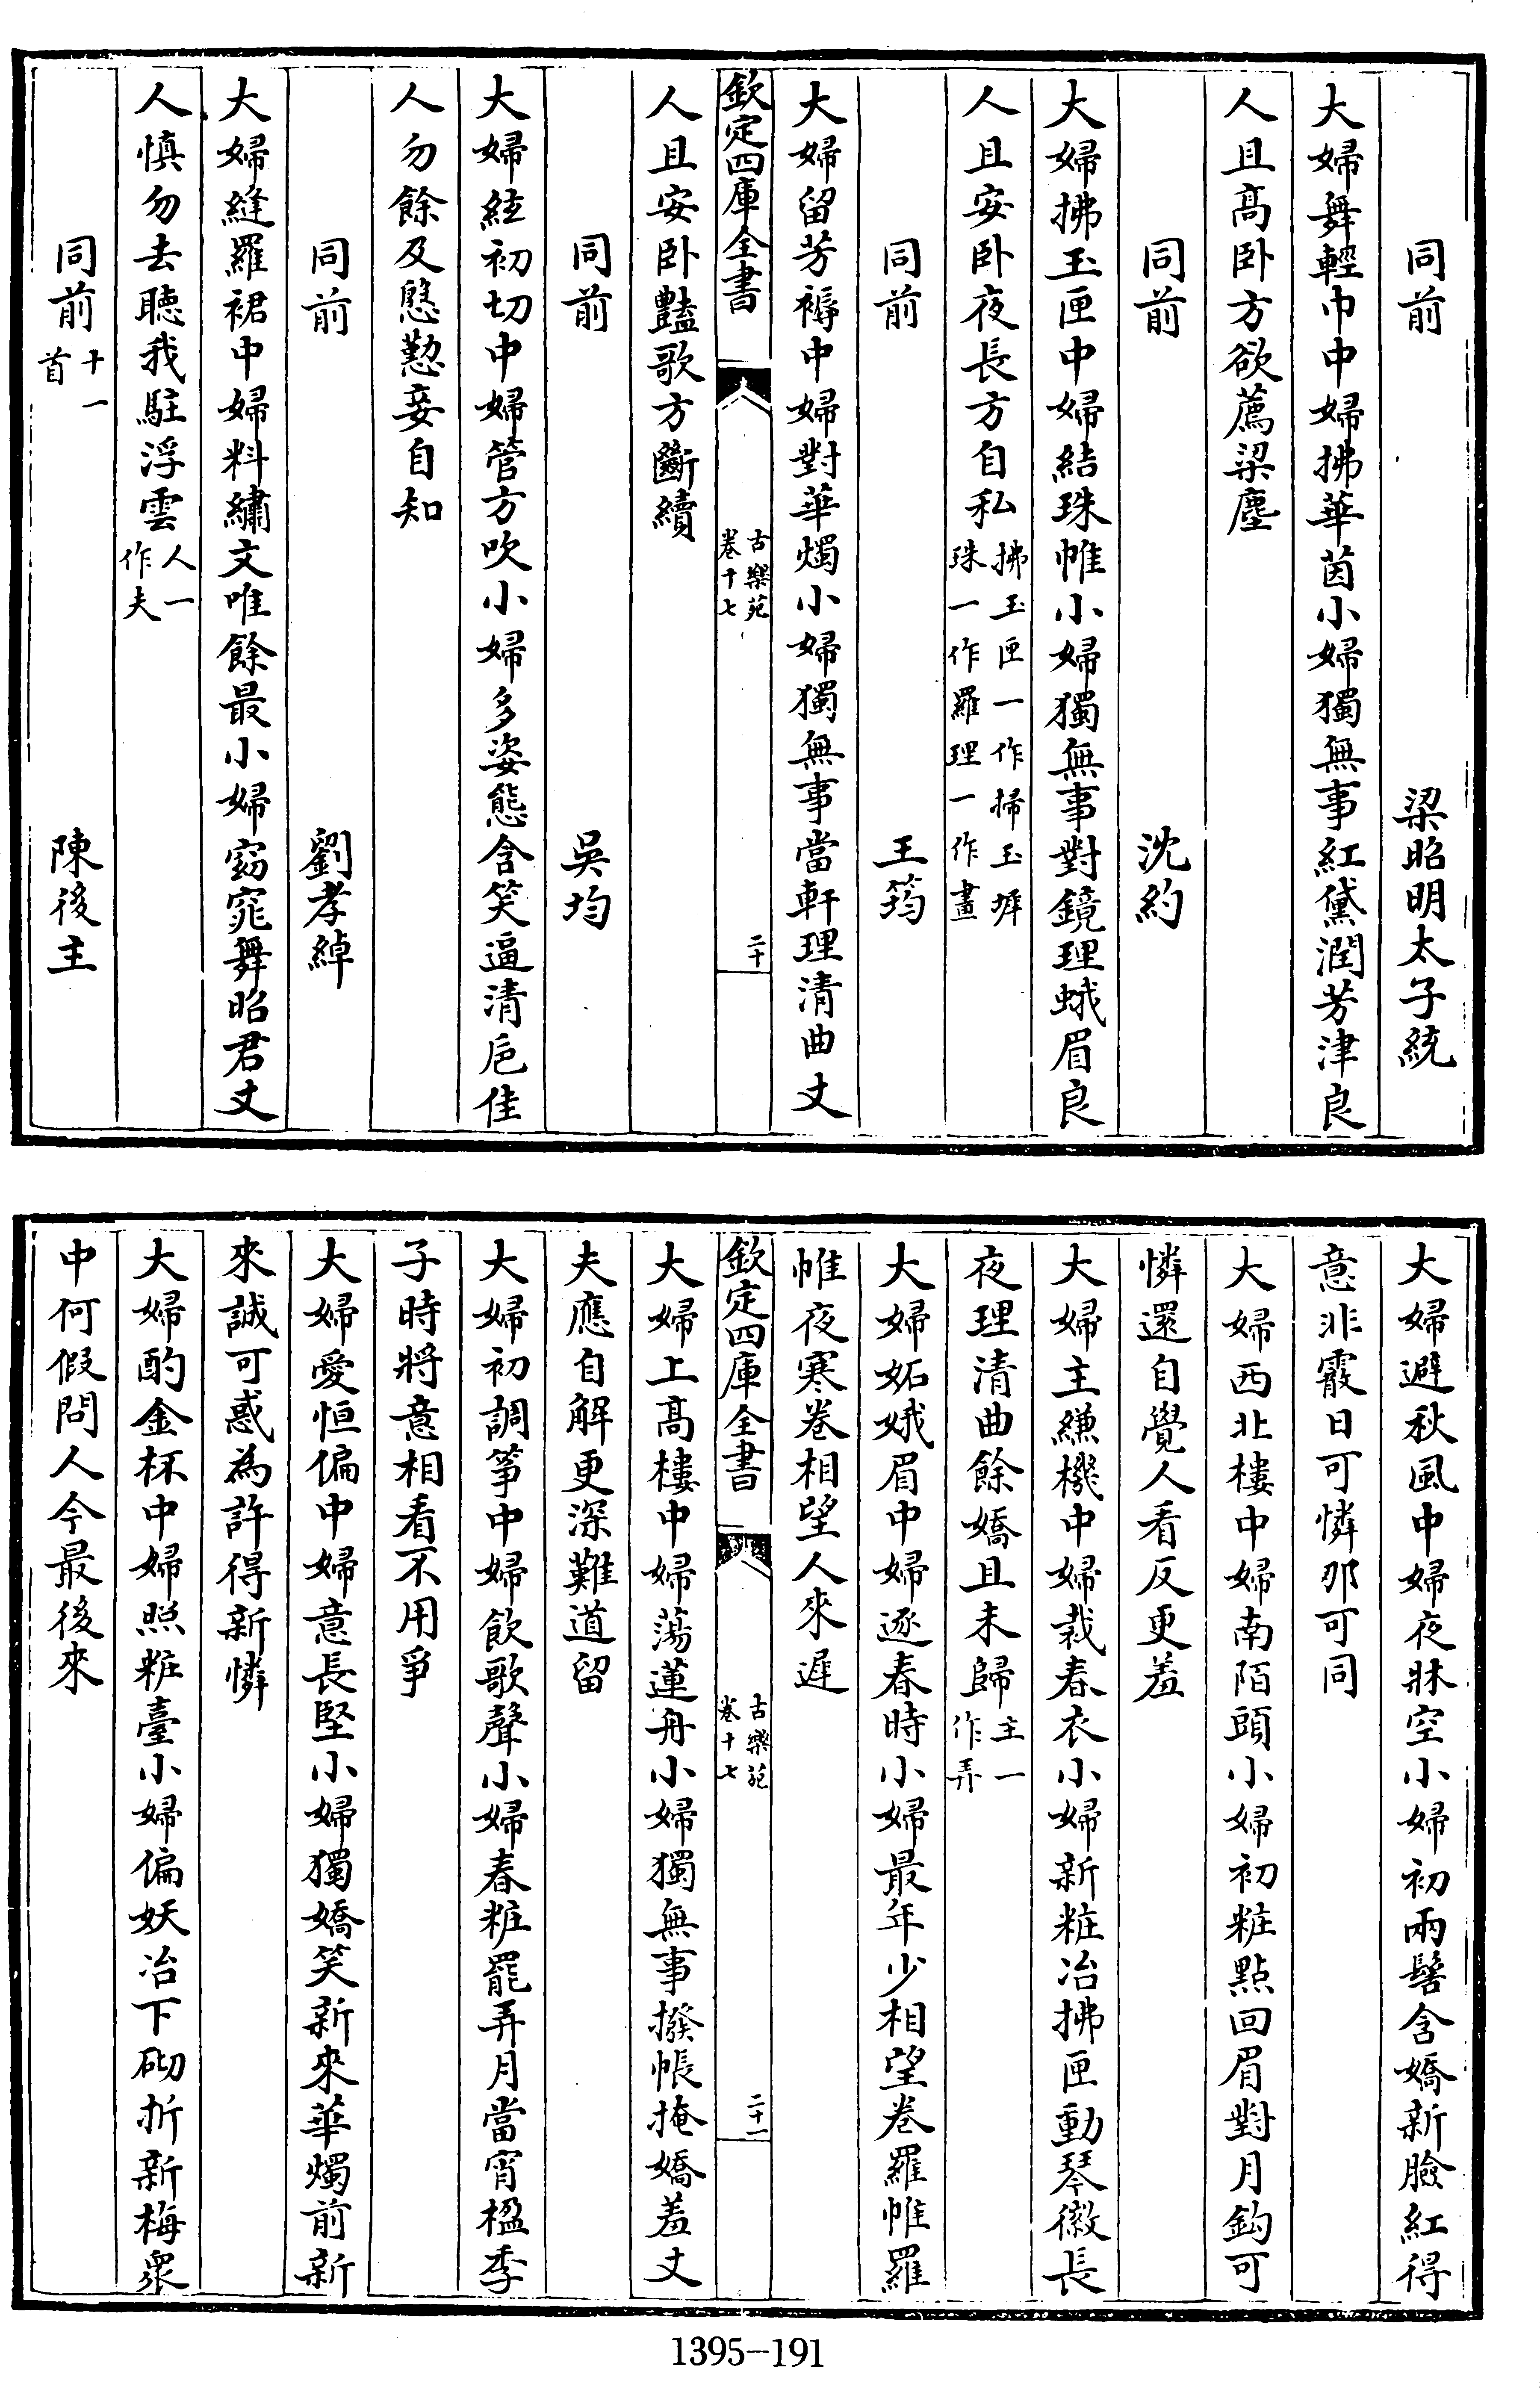 同前 梁昭明太子統
大婦舞輕巾中婦拂華茵小婦獨無事紅黛潤芳津良
人且髙卧方欲薦梁塵
同前 沈約
大婦拂玉匣中婦結珠帷小婦獨無事對鏡理蛾眉良
人且安卧夜長方自私拂玉匣一作掃玉墀珠一作羅理一作畫
同前 王筠
大婦留芳褥中婦對華燭小婦獨無事當軒理清曲丈
欽定四庫全書 古樂苑卷十七 二十
人且安卧豔歌方斷續
同前 吳均
大婦絃初切中婦管方吹小婦多姿態含笑逼清巵佳
人勿餘及慇懃妾自知
同前 劉孝綽
大婦縫羅裙中婦料繡文唯餘最小婦窈窕舞昭君丈
人慎勿去聽我駐浮雲人一作夫
同前十一首 陳後主
大婦避秋風中婦夜牀空小婦初兩髻含嬌新臉紅得
意非霰日可憐那可同
大婦西北樓中婦南陌頭小婦初粧點回眉對月鈎可
憐還自覺人看反更羞
大婦主縑機中婦裁春衣小婦新粧冶拂匣動琴徽長
夜理清曲餘嬌且未歸主一作弄
大婦妬娥眉中婦逐春時小婦最年少相望卷羅帷羅
帷夜寒卷相望人來遲
欽定四庫全書 古樂苑卷十七 二十一
大婦上髙樓中婦蕩蓮舟小婦獨無事撥帳掩嬌羞丈
夫應自解更深難道留
大婦初調箏中婦飲歌聲小婦春粧罷弄月當宵楹季
子時將意相看不用爭
大婦愛恒偏中婦意長堅小婦獨嬌笑新來華燭前新
來誠可惑為許得新憐
大婦酌金杯中婦照粧臺小婦偏妖冶下砌折新梅衆
中何假問人今最後來
1395-191